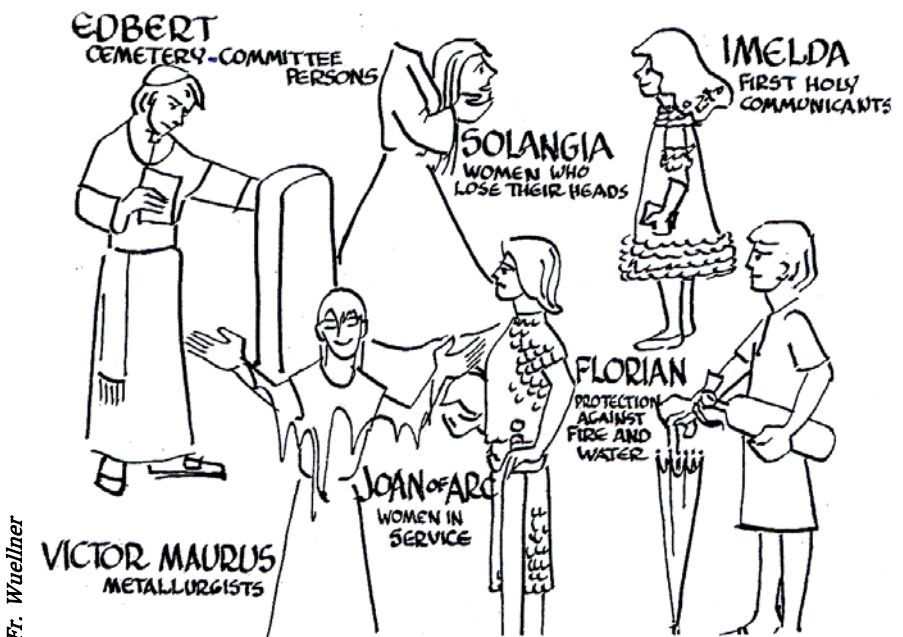 EDBERT
CEMETERY-COMMITTEE
PERSONS
SOLANGIA
WOMEN WHO
LOSE THEIR HEADS
IMELDA
FIRST HOLY
COMMUNICANTS
FLORIAN
PROTECTION
AGAINST
FIRE AND
WATER
JOAN OF ARC
WOMEN IN
SERVICE
VICTOR MAURUS
METALLURGISTS
Fr. Wuellner